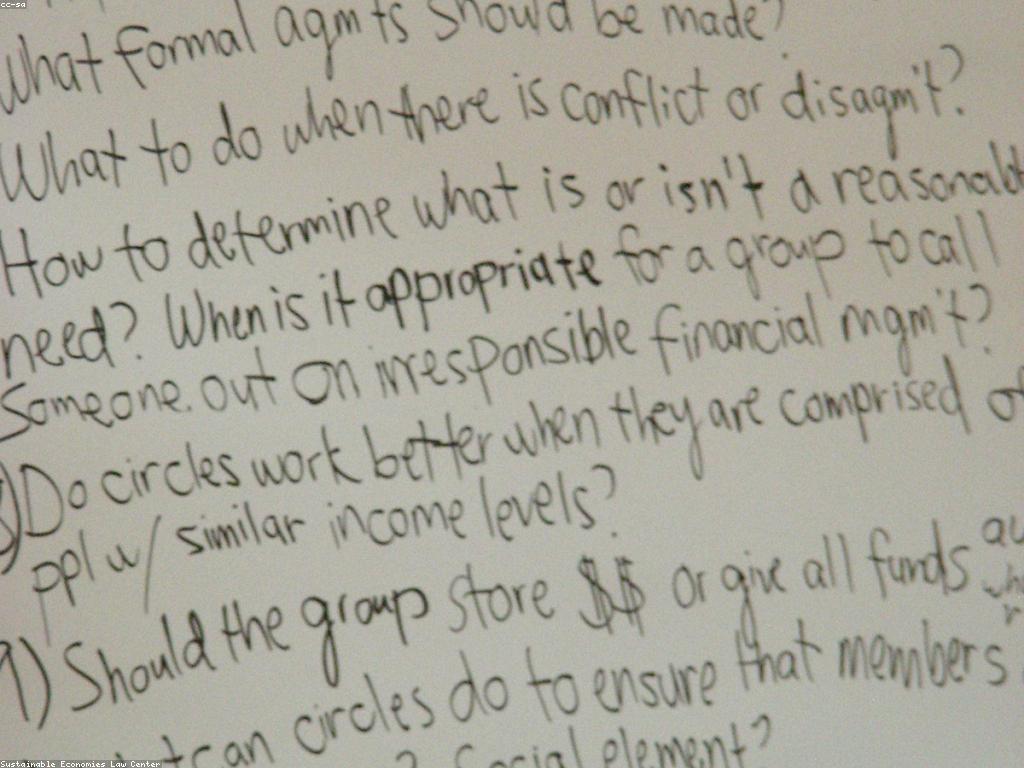 cc-sa
What formal agmts should be made?
What to do when there is conflict or disagm't?
How to determine what is or isn't a reasonabl
need? When is it appropriate for a group to call
Someone out on irresponsible financial mgm't?
Do circles work better when they are comprised of
ppl w/ similar income levels?
9) Should the group store $$ or give all funds
can circles do to ensure that members
Social element?
Sustainable Economies Law Center